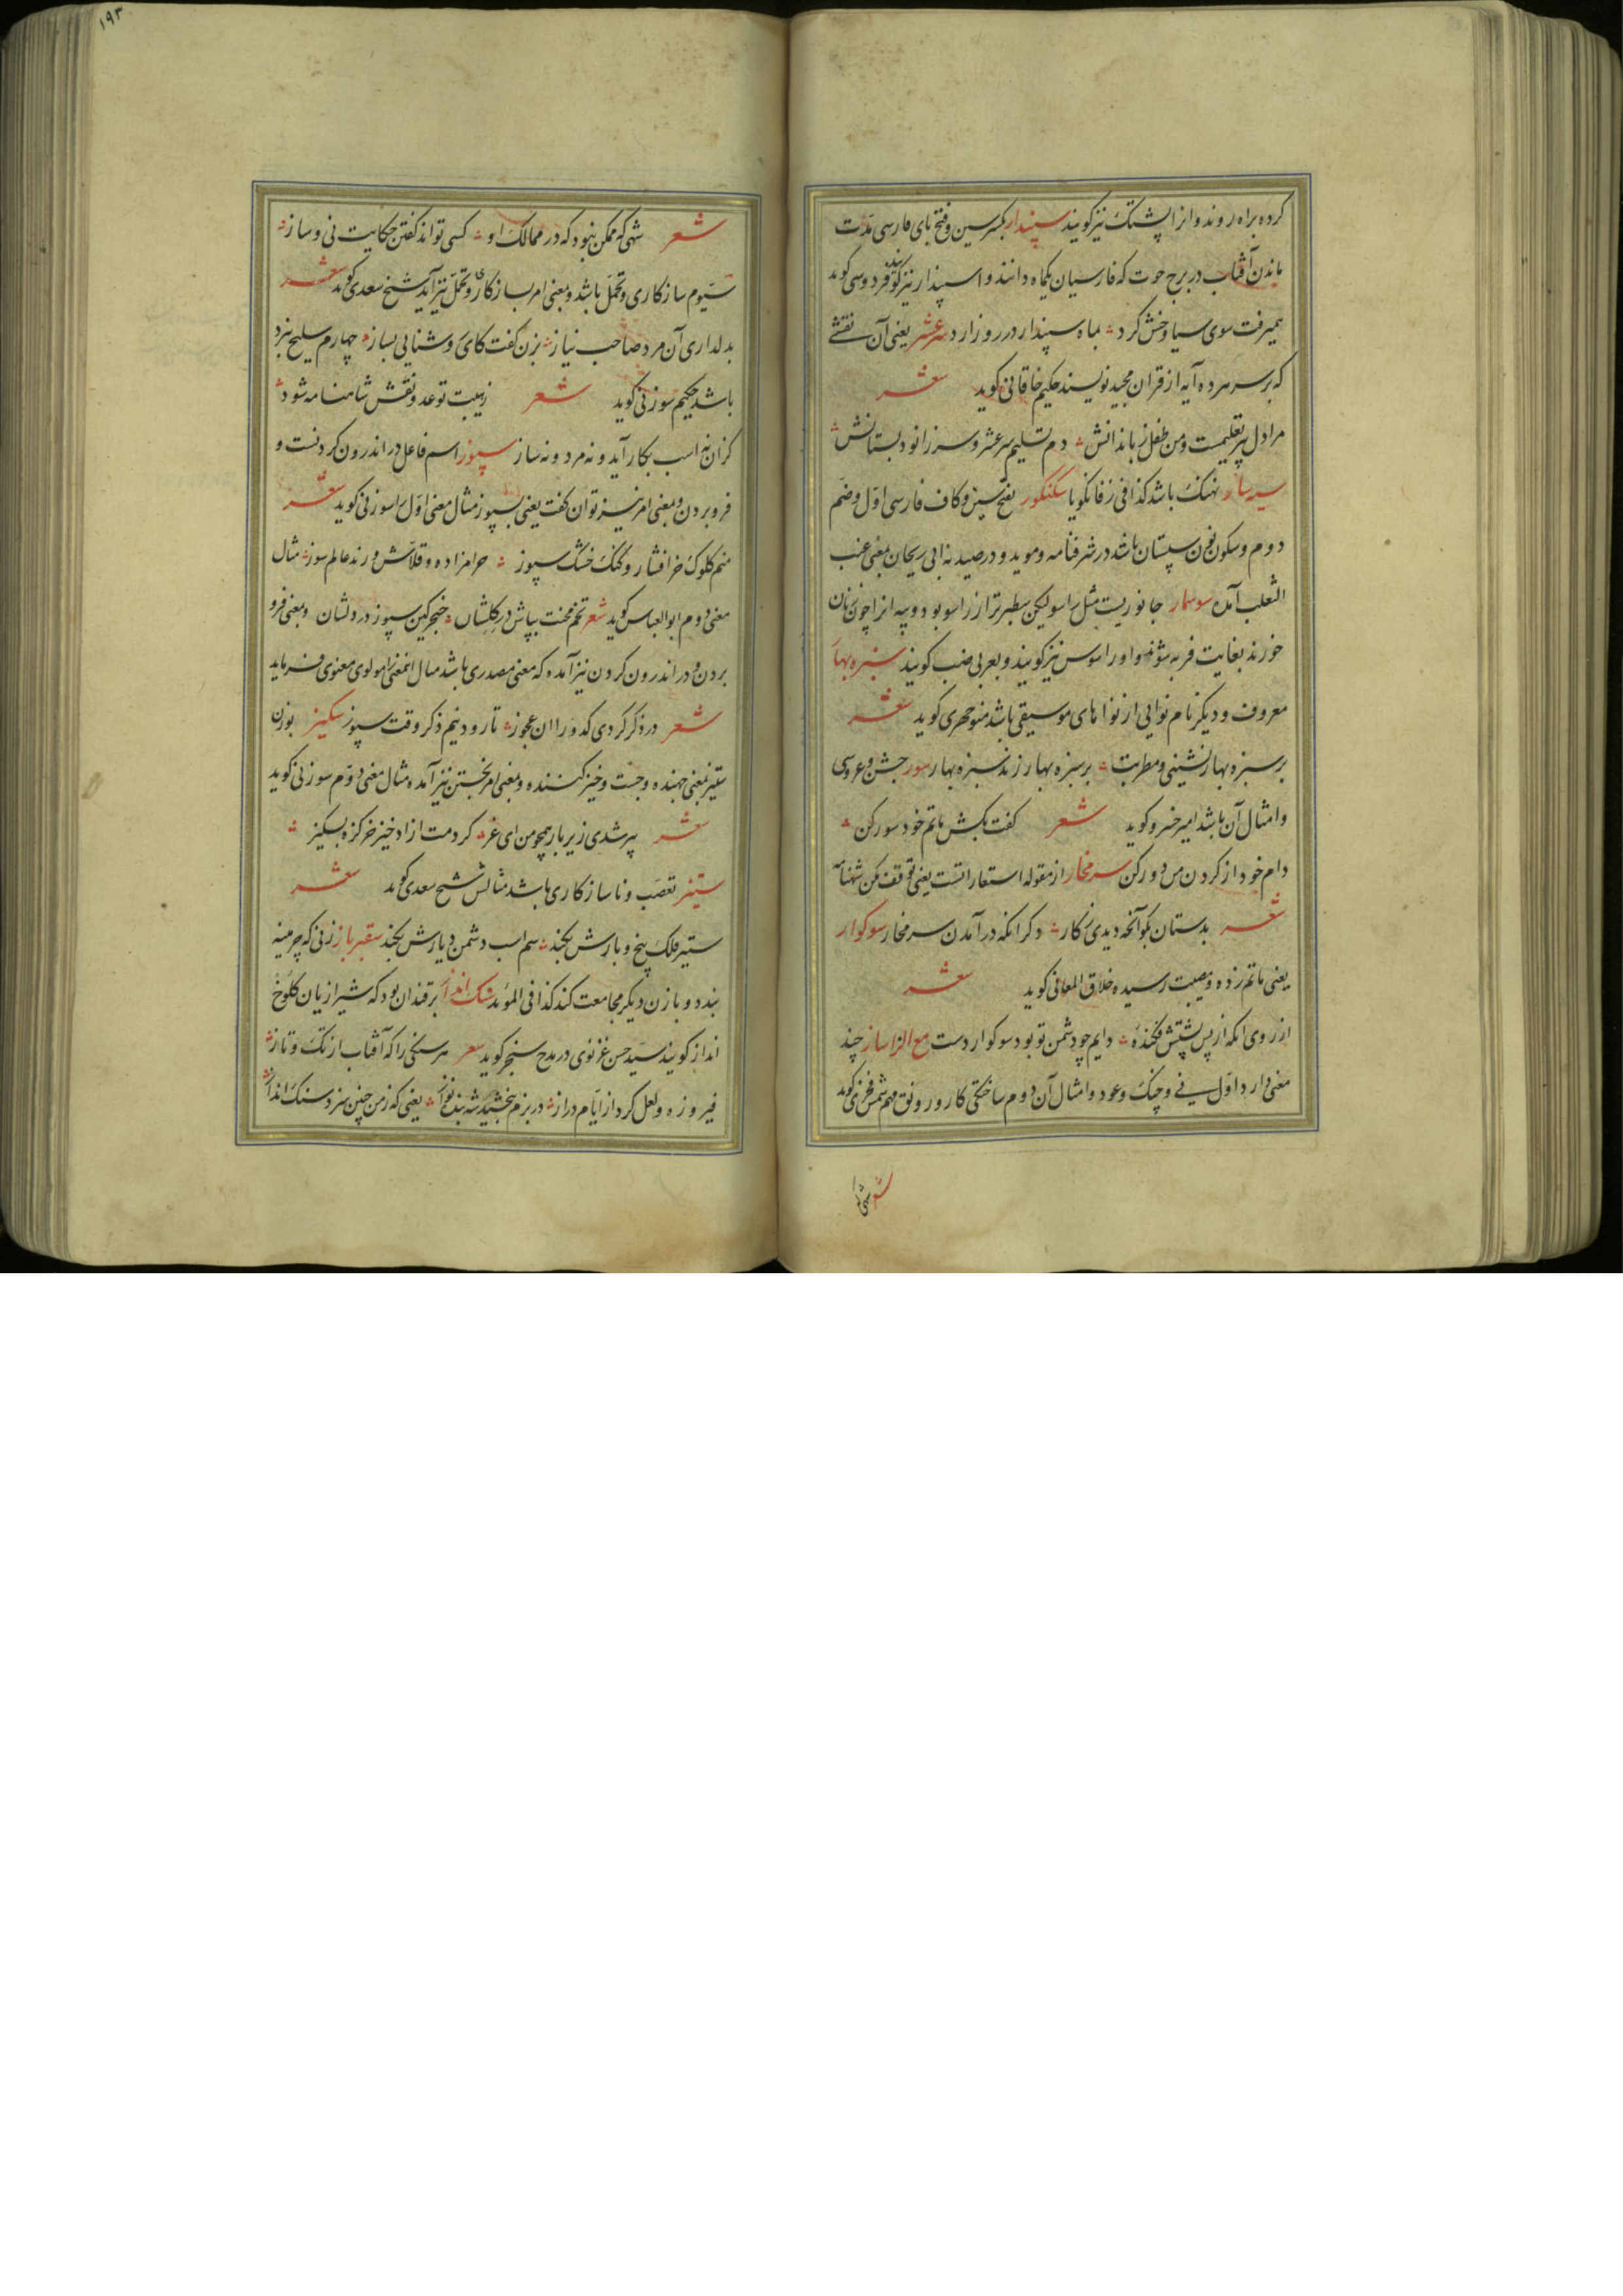 کرده براه روند و انرا پشتک نیز کویند سپندار بکسر سین و فتح بای فارسی مدت
ماندن آفتاب در برج حوت که فارسیان یکماه دانند و اسپندار نیز کویند فردوسی کوید
همیرفت سوی سیاوخش کرد بماه سپندار در روز ارد سرعشر یعنی آن نقشی
که بر سر هر ده آیه از قران مجید نویسند حکیم خاقانی کوید شعر
مرا دل پیر تعلیمست و من طفل زباندانش دم تسلیم سرعشر و سر زانو دبستانش
نهنک باشد کذا فی زفانکویا سکنکور بفتح سین و کاف فارسی اول و ضم
دوم و سکون نون سپستان باشد در شرفنامه و موید و در صیدنه ابی ریحان بمعنی عنب
الثعلب آمده سوسمار جانوریست مثل راسو لیکن سطبرتر از راسو بود و پیه انرا چون زنان
خورند بغایت فربه شوند و او را سوس نیز کویند و بعربی ضب کویند سبزه بهار
معروف و دیکر نام نوایی از نواهای موسیقی باشد منوچهری کوید شعر
بر سبزه بهار نشینی و مطربت بر سبزه بهار زند سبزه بهار سور جشن و عروسی
و امثال آن باشد امیر خسرو کوید شعر کفت بکش ماتم خود سور کن
دام خود از کردن من دور کن سرمخار از مقوله استعاراتست یعنی توقف مکن شهنامه
شعر بدستان بکو آنچه دیدی ز کار دکر انکه در آمدن سرمخار سوکوار
یعنی ماتم زده و مصیبت رسیده خلاق المعانی کوید شعر
از روی انکه از پس پشتش فکنده دایم چو دشمن تو بود سوکوار دست مع الزا ساز چند
معنی دارد اول نی و چنک و عود و امثال آن دوم ساختکی کار و رونق مهم شمس فخری کوید
شعر شهی که
۱۹۳
شعر شهی که ممکن نبود که در ممالک او کسی تواند کفتن حکایت نی و ساز
سیوم سازکاری و تحمل باشد و بمعنی امر بسازکاری و تحمل نیز آید شیخ سعدی کوید شعر
بدلداری آن مرد صاحب نیاز بزن کفت کای روشنایی بساز چهارم سلیح نبرد
باشد حکیم سوزنی کوید شعر زهیبت تو عدو نقش شاهنامه شود
کزان نه اسب بکار آید و نه مرد و نه ساز سپوز اسم فاعل در اندرون کردنست و
فرو بردن و بمعنی امر نیز توان کفت یعنی بسپوز مثال معنی اول را سوزنی کوید شعر
منم کلوک خرافشار و کنک خشک سپوز حرامزاده و قلاش و رند عالم سوز مثال
معنی دوم ابو العباس کوید شعر تخم محنت بپاش در کلشان خنجر کین سپوز در دلشان و بمعنی فرو
بردن و در اندرون کردن نیز آمده که معنی مصدری باشد مثال انمعنی را مولوی معنوی فرماید
شعر در ذکر کردی کدو را ان عجوز تا رود نیم ذکر وقت سپوز سکیز بوزن
ستیز بمعنی جهنده و جست و خیز کننده و بمعنی امر بجستن نیز آمده مثال معنی دوم سوزنی کوید
شعر پیر شدی زیر بار همچو من ای غر کردمت ازاد خیز خر کزه بسکیز
ستیز تعصب و ناسازکاری باشد مثالش شیخ سعدی کوید شعر
ستیز فلک بیخ و بارش بکند سم اسب دشمن دیارش بکند سقیرباز زنی که چرمینه
بندد و با زن دیکر مجامعت کند کذا فی الموید سنک انداز برقندان بود که شیرازیان کلوخ
انداز کویند سید حسن غزنوی در مدح سنجر کوید شعر هر سنکی را که آفتاب از تک و تاز
فیروزه و لعل کرد از ایام دراز در بزم ببخشید شه بنده نواز یعنی که ز من چنین سزد سنک انداز